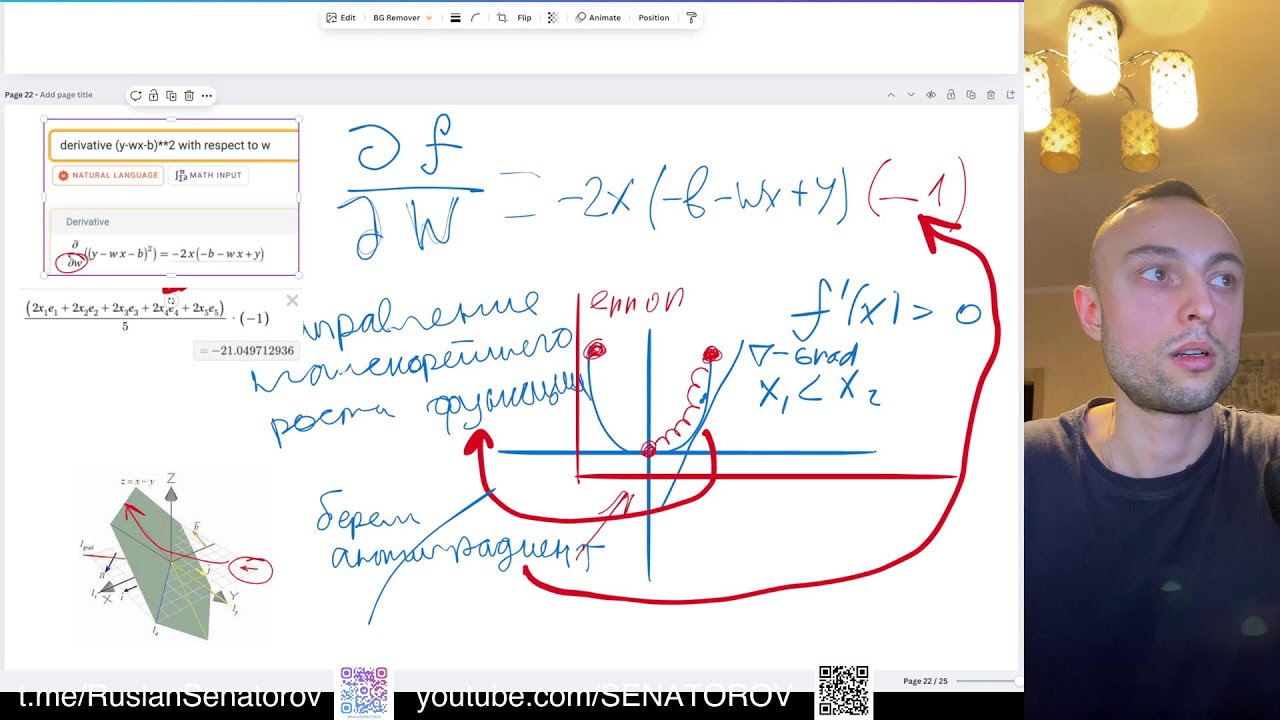 Edit BG Remover Flip Animate Position
Page 22 - Add page title
derivative (y-wx-b)**2 with respect to w
NATURAL LANGUAGE MATH INPUT
Derivative
∂/∂w((y − w x − b)²) = −2 x (−b − w x + y)
(2x₁e₁ + 2x₂e₂ + 2x₃e₃ + 2x₄e₄ + 2x₅e₅)/5 · (−1)
= −21.049712936
∂f/∂W = -2x(-b-wx+y)(-1)
f'(x) > 0
∇-Grad
x₁ < x₂
роста функции
берем
антиградиент
z = x − y
Z
X
Y
Page 22 / 25
t.me/RuslanSenatorov
youtube.com/SENATOROV